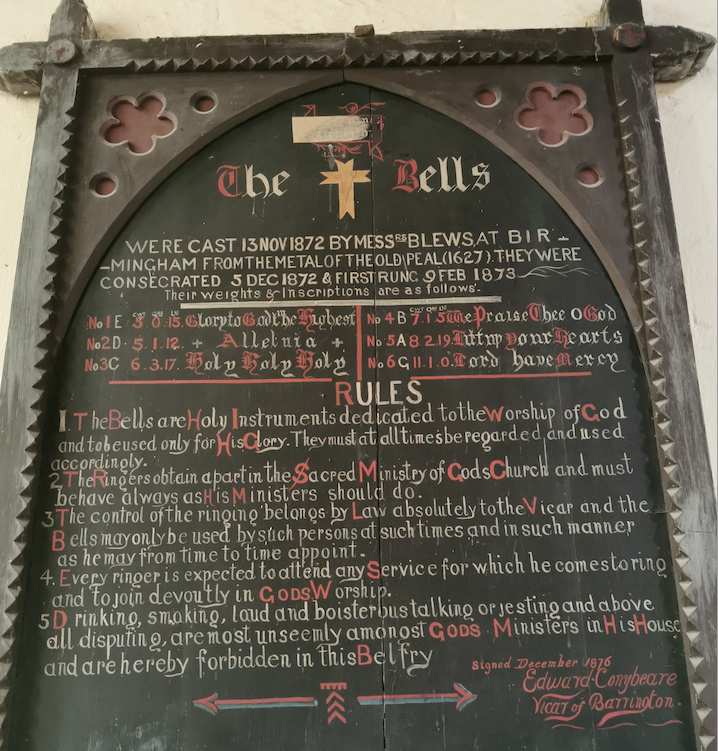 The Bells
WERE CAST 13 NOV 1872 BY MESSRS BLEWS, AT BIR-
-MINGHAM FROM THE METAL OF THE OLD PEAL (1627). THEY WERE
CONSECRATED 5 DEC 1872 & FIRST RUNG 9 FEB 1873
Their weights & Inscriptions are as follows:
CWT QRS LBS
No 1 E 5.0.15. Glory to God in the Highest
No 2 D. 5.1.12. + Alleluia +
No 3 C 6.3.17. Holy Holy Holy
CWT QRS LBS
No 4 B 7.1.5 We Praise Thee O God
No 5 A 8.2.19. Lift up your Hearts
No 6 G 11.1.0. Lord have Mercy
RULES
1. The Bells are Holy Instruments dedicated to the Worship of God
and to be used only for His Glory. They must at all times be regarded and used
accordingly.
2 The Ringers obtain a part in the Sacred Ministry of Gods Church and must
behave always as His Ministers should do.
3 The control of the ringing belongs by Law absolutely to the Vicar and the
Bells may only be used by such persons at such times and in such manner
as he may from time to time appoint.
4. Every ringer is expected to attend any Service for which he comes to ring
and to join devoutly in GODS Worship.
5 Drinking, smoking, loud and boisterous talking or jesting and above
all disputing, are most unseemly amongst Gods Ministers in His House
and are hereby forbidden in this Belfry
Signed December 1876
Edward Conybeare
Vicar of Barrington.